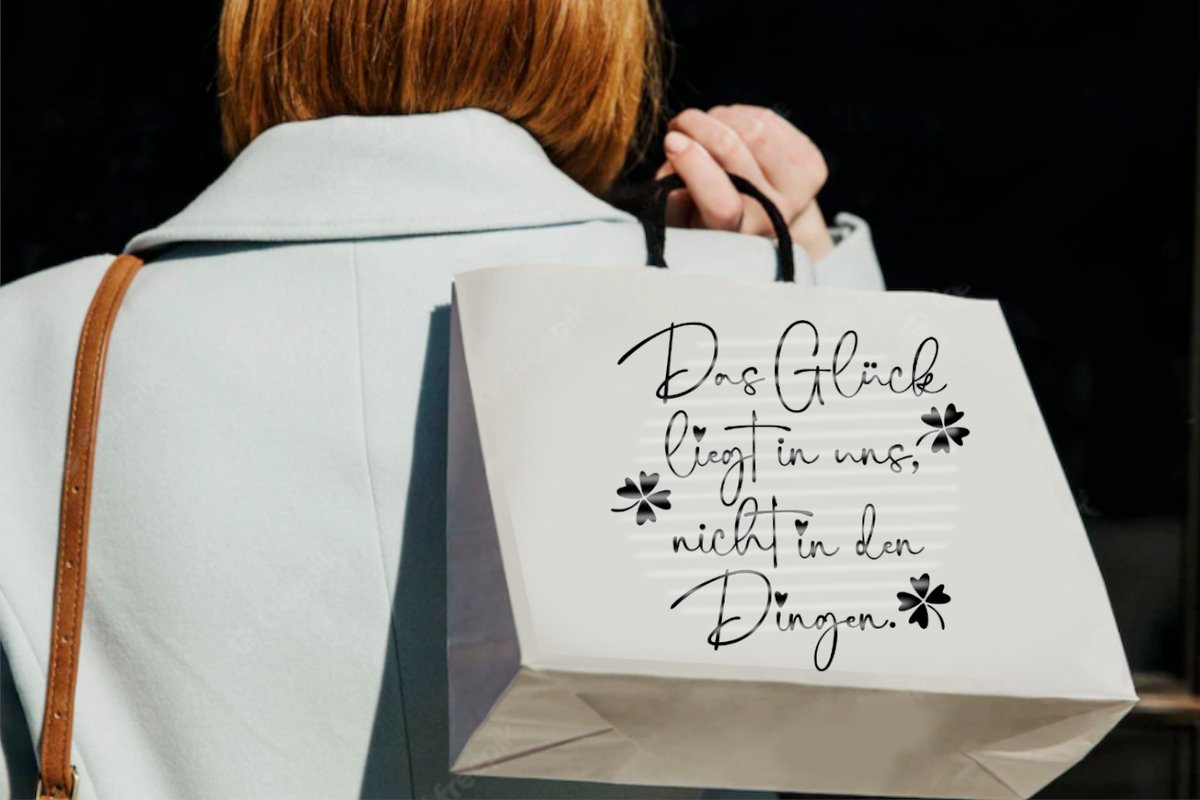 Das Glück
liegt in uns,
nicht in den
Dingen.